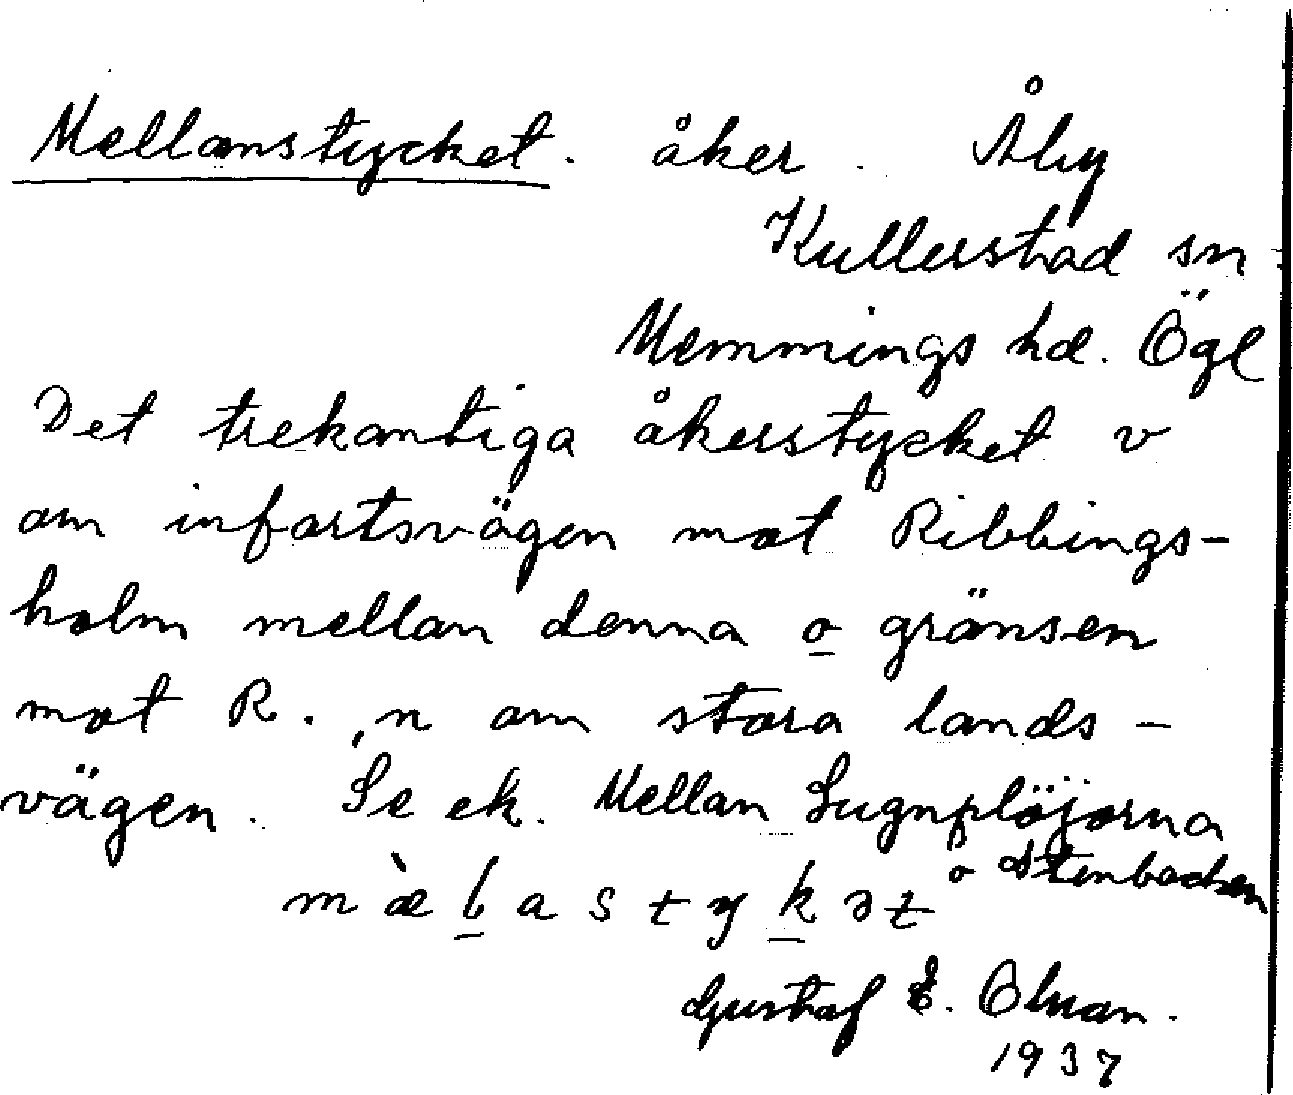 Mellanstycket. åker. Åby
Kullerstad sn
Memmings hd. Ögl
Det trekantiga åkerstycket v
om infartsvägen mot Ribbings-
holm mellan denna o gränsen
mot R., n om stora lands-
vägen. Se ek. Mellan Lugnplöjorna
o Stenbacken
m æ̀ l a s t y k ə t
Gustaf E. Olsson.
1937